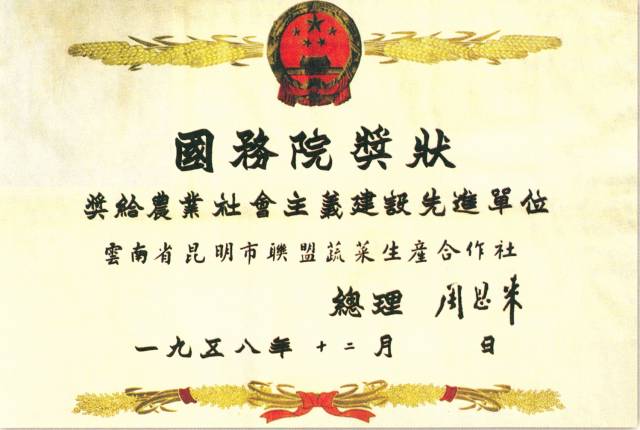 國務院獎狀
獎給農業社會主義建設先進單位
雲南省昆明市聯盟蔬菜生產合作社
總理 周恩来
一九五八年 十二月 日